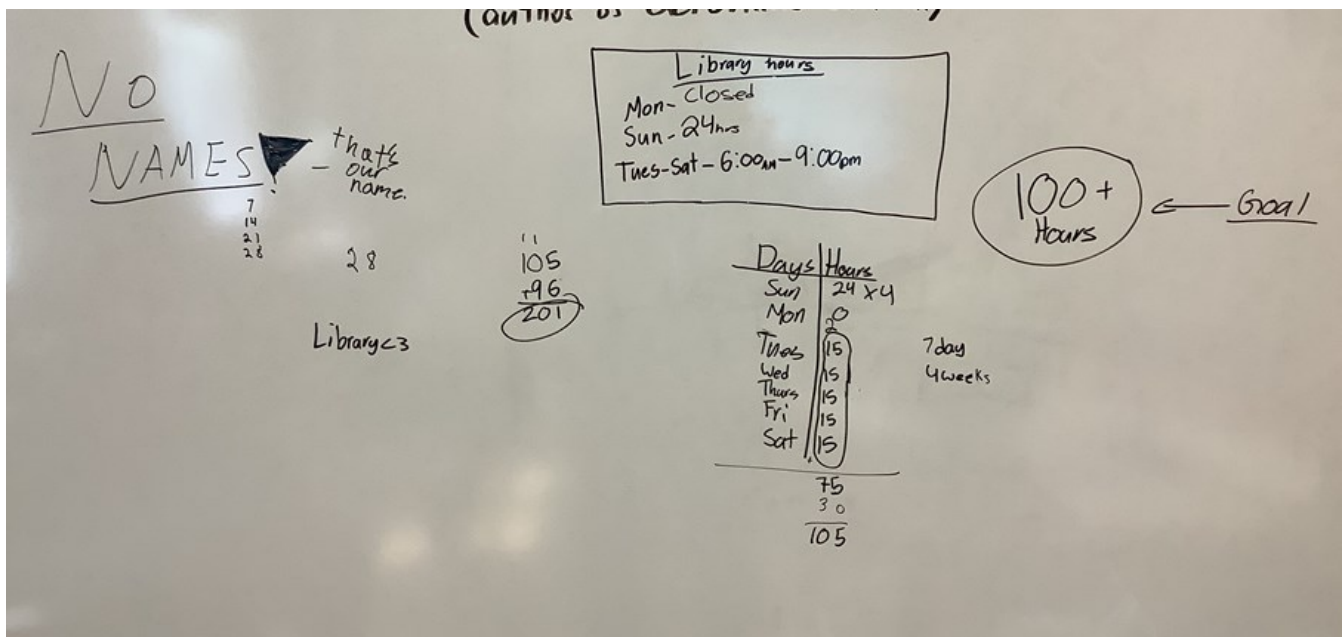 (author of
No
NAMES!
- thats
- our
name.
7
14
21
28
28
Library<3
11
105
+96
201
Library hours
Mon- Closed
Sun- 24hrs
Tues-Sat- 6:00AM-9:00pm
100+
Hours
Goal
Days Hours
Sun 24 x4
Mon 0
2
Tues 15
Wed 15
Thurs 15
Fri 15
Sat 15
75
30
105
7day
4weeks